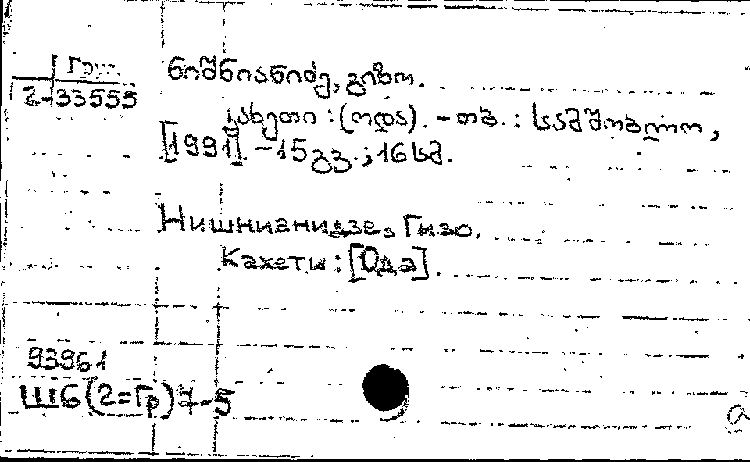 Груз.
2-33555
ნიშნიანიძე, გიზო.
კახეთი : (ოდა). – თბ. : სამშობლო,
[1991]. – 15 გვ. ; 16 სმ.
Нишнианидзе, Гизо.
Кахети : [Ода].
93961
Ш6(2=Гр)7-5
a